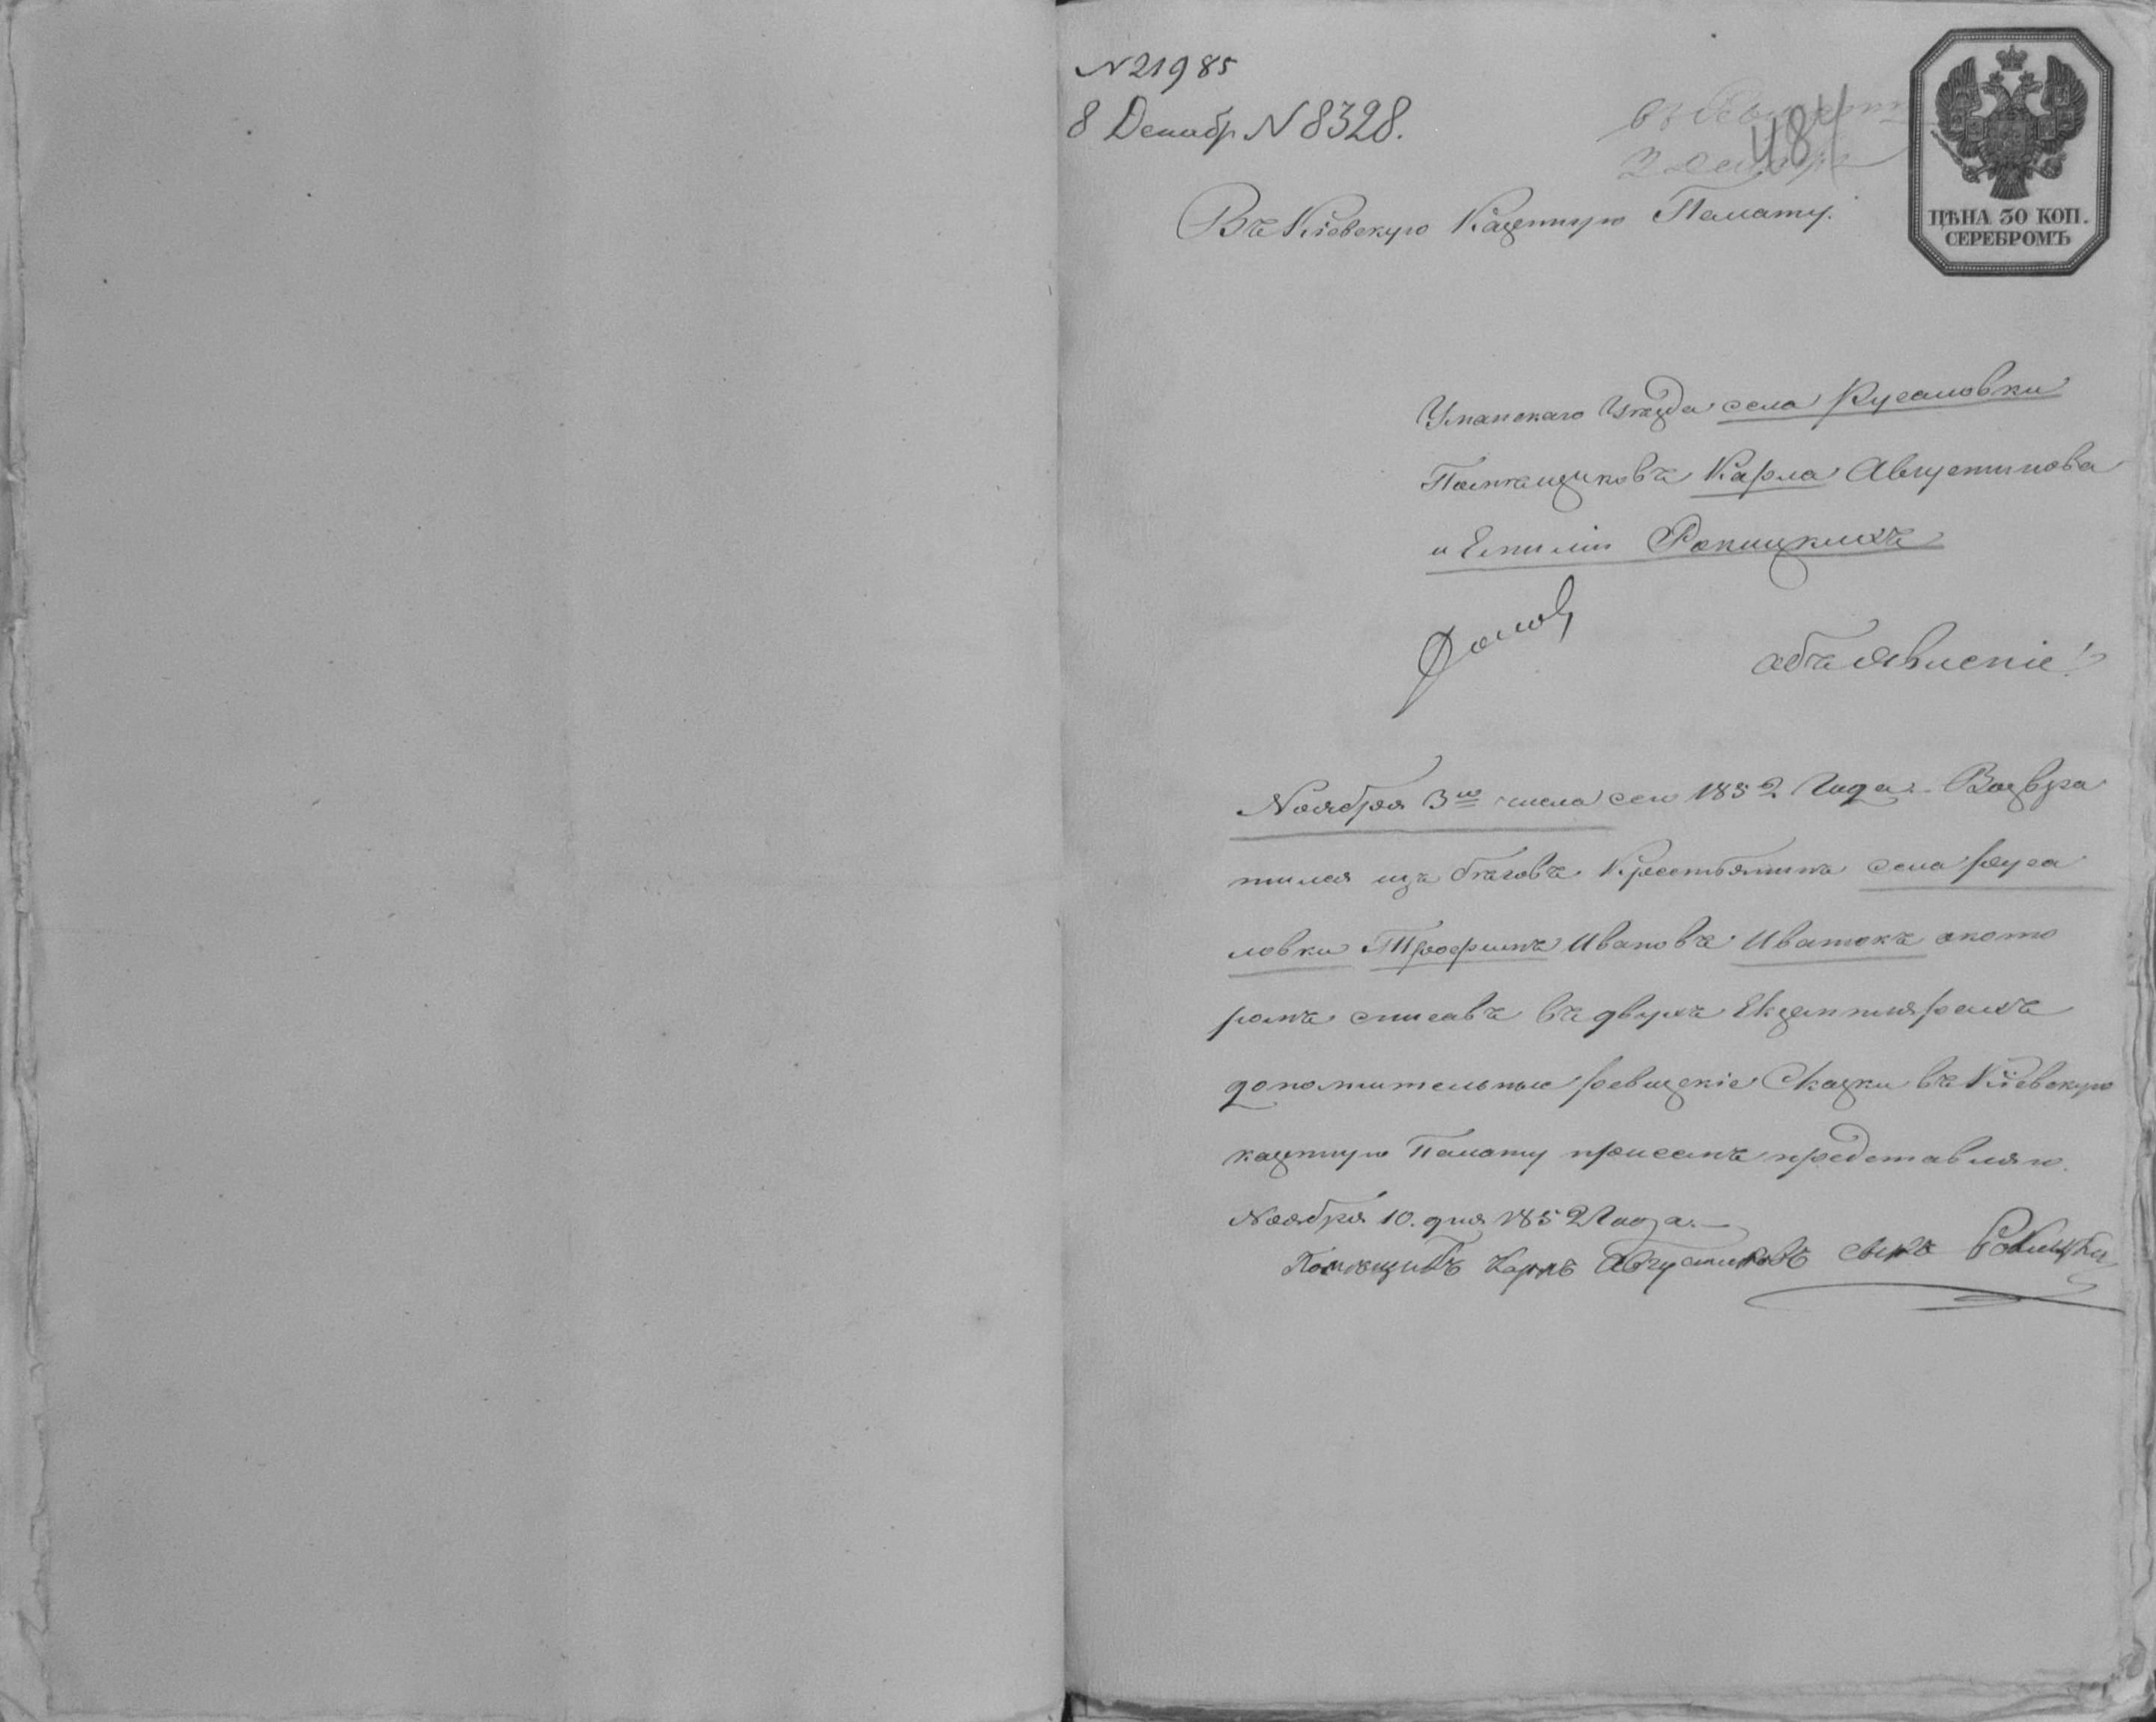 N 21985
8 Декабр N 8328.
484
ЦѢНА 30 КОП.
СЕРЕБРОМЪ
Въ Кіевскую Казенную Палату.
Уманскаго Уѣзда села Русаловки
Помѣщиковъ Карла Августинова
и Емиліи Рокицкихъ
объявленіе!
Ноября 3го числа сего 1852 Года. Возвра
тился изъ бѣговъ Крестьянинъ села Руса
ловки Трофимъ Ивановъ Иватокъ окото
ромъ списавъ въ двухъ Екземплярахъ
дополнительные ревизскіе Сказки въ Кіевскую
казенную Палату присемъ представляю.
Ноября 10. дня 1852 Года.
Помѣщикъ Карлъ Августиновъ сынъ Рокицкій